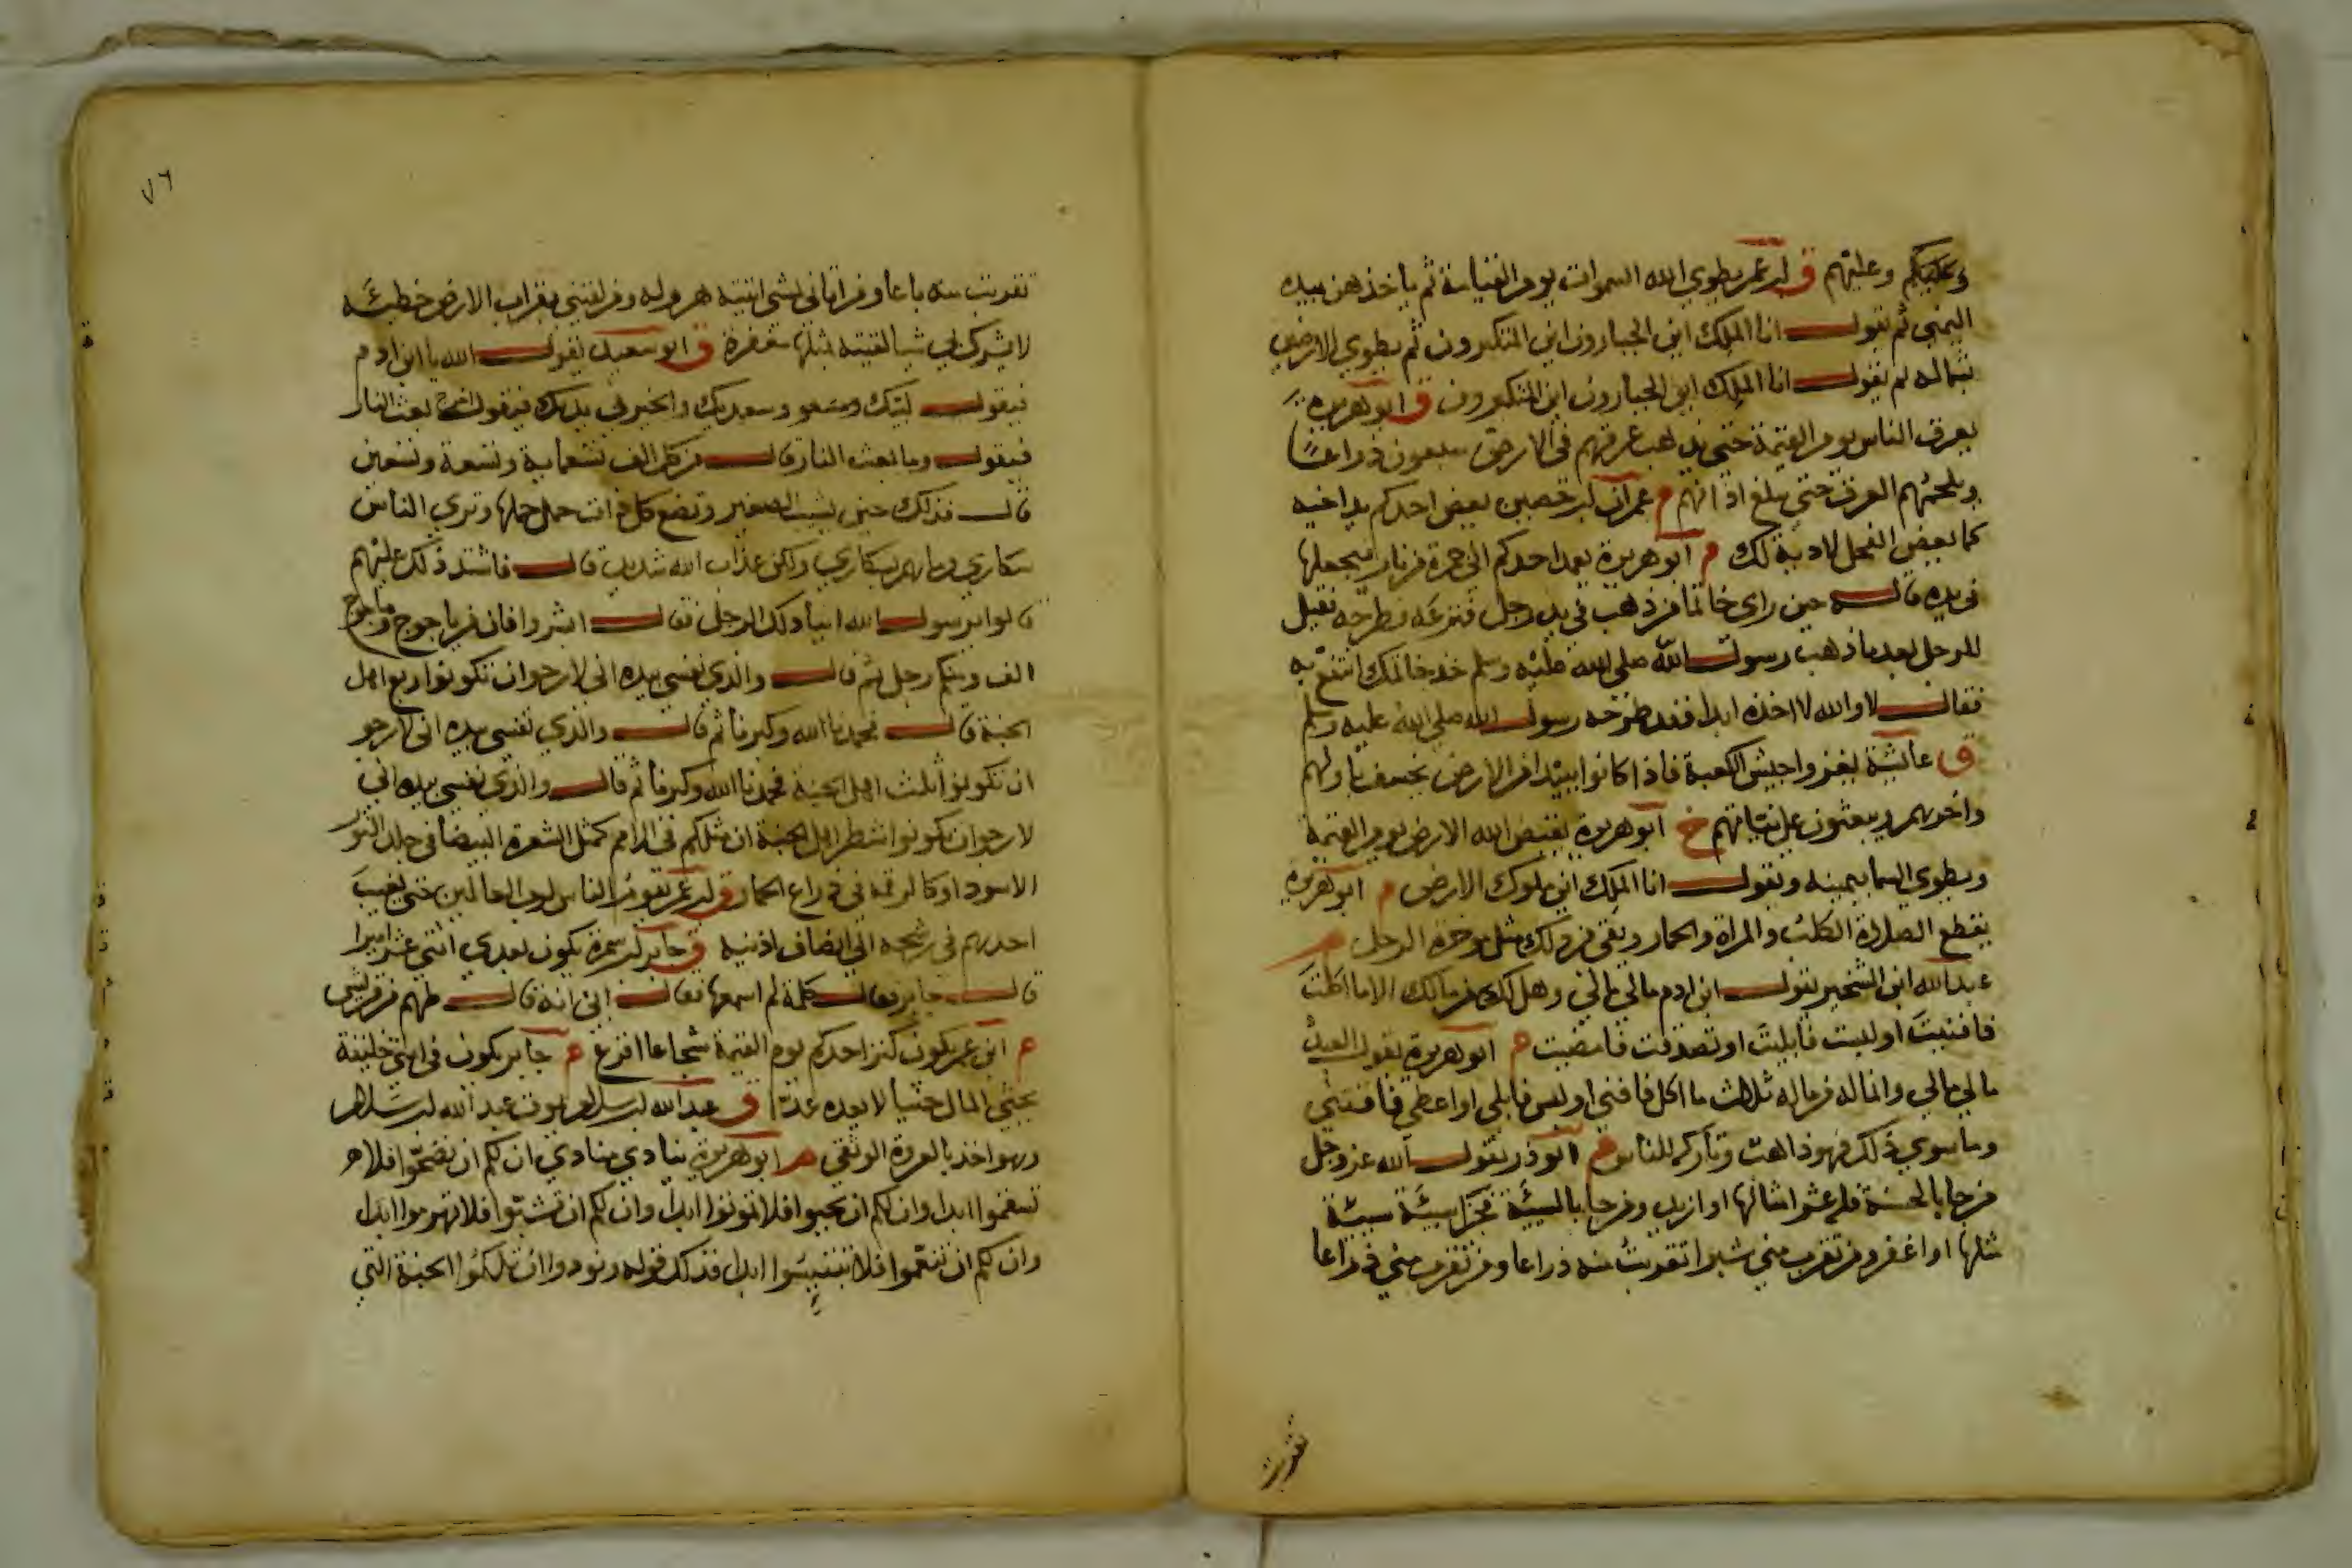 وعليكم وعليهم ق ابن عمر يطوي الله السموات يوم القيامة ثم ياخذهن بيده
اليمني ثم يقول انا الملك اين الجبارون اين المتكبرون ثم يطوي الارضين
بشماله ثم يقول انا الملك اين الجبارون اين المتكبرون ق ابو هريرة
يعرق الناس يوم القيمة حتي يذهب عرقهم في الارض سبعون ذراعا
ويلجمهم العرق حتي يبلغ اذانهم م عمران ابن حصين يعض احدكم يد اخيه
كما يعض الفحل لا دية لك م ابو هريرة يعمد احدكم الي جمرة من نار فيجعلها
في يده قاله حين راى خاتما من ذهب في يد رجل فنزعه فطرحه فقيل
للرجل بعد ما ذهب رسول الله صلي الله عليه وسلم خذ خاتمك انتفع به
فقال لا والله لا اخذه ابدا فقد طرحه رسول الله صلي الله عليه وسلم
ق عائشة يغزوا جيش الكعبة فاذا كانوا ببيدا من الارض يخسف باولهم
واخرهم ويبعثون علي نياتهم خ ابو هريرة يقبض الله الارض يوم القيمة
ويطوي السما بيمينه ويقول انا الملك اين ملوك الارض م ابو هريرة
يقطع الصلاة الكلب والمراة والحمار ويقي من ذلك مثل موخرة الرحل م
عبد الله ابن الشخير يقول ابن ادم مالي مالي وهل لك من مالك الا ما اكلت
فافنيت او لبست فابليت او تصدقت فامضيت م ابو هريرة يقول العبد
مالي مالي وانما له من ماله ثلاث ما اكل فافني او لبس فابلي او اعطي فاقتني
وما سوي ذلك فهو ذاهب وتاركه للناس م ابو ذر يقول الله عز وجل
من جا بالحسنة فله عشر امثالها او ازيد ومن جا بالسيئة فجزا سيئة سيئة
مثلها او اغفر ومن تقرب مني شبرا تقربت منه ذراعا ومن تقرب مني ذراعا
تقربت
٧٦
تقربت منه باعا ومن اتاني يمشي اتيته هرولة ومن لقيني بقراب الارض خطيئة
لا يشرك بي شيا لقيته بمثلها مغفرة ق ابو سعيد يقول الله يا ابن ادم
فيقول لبيك وسعديك والخير في يديك فيقول اخرج بعث النار
فيقول وما بعث النار قال من كل الف تسعماية وتسعة وتسعين
قال فذلك حين يشيب الصغير وتضع كل ذات حمل حملها وتري الناس
سكاري وما هم بسكاري ولكن عذاب الله شديد قال فاشتد ذلك عليهم
قالوا يرسول الله اينا ذلك الرجل فقال ابشروا فان من ياجوج وماجوج
الف ومنكم رجل ثم قال والذي نفسي بيده اني لارجوا ان تكونوا ربع اهل
الجنة قال فحمدنا الله وكبرنا ثم قال والذي نفسي بيده اني لارجو
ان تكونوا ثلث اهل الجنة فحمدنا الله وكبرنا ثم قال والذي نفسي بيده اني
لارجوان تكونوا شطر اهل الجنة ان مثلكم في الامم كمثل الشعرة البيضا في جلد الثور
الاسود او كالرقمة في ذراع الحمار ق ابن عمر يقوم الناس لرب العالمين حتي يغيب
احدهم في رشحه الي انصاف اذنيه ق جابر ابن سمرة يكون بعدي اثني عشر اميرا
قال جابر فقال كلمة لم اسمعها فقال ابي انه قال كلهم من قريش
م ابن عمر يكون كنز احدكم يوم القيمة شجاعا اقرع م جابر يكون في امتي خليفة
يحثي المال حثيا لا يعده عدا ق عبد الله ابن سلام يموت عبد الله ابن سلام
وهو اخذ بالعروة الوثقي م ابو هريرة ينادي منادي ان لكم ان تصحوا فلا
تسقموا ابدا وان لكم ان تحيوا فلا تموتوا ابدا وان لكم ان تشبوا فلا تهرموا ابدا
وان لكم ان تنعموا فلا تبتئسوا ابدا فذلك قوله ونودوا ان تلكموا الجنة التي